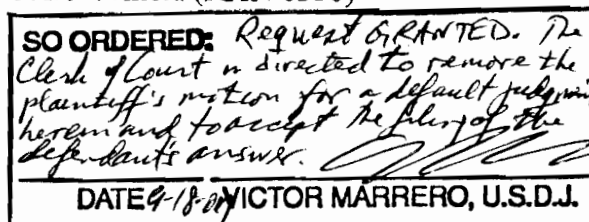 SO ORDERED: Request GRANTED. The
Clerk of Court is directed to remove the
plaintiff's motion for a default judgment
herein and to accept the filing of the
defendant's answer.
DATE 9-18- VICTOR MARRERO, U.S.D.J.